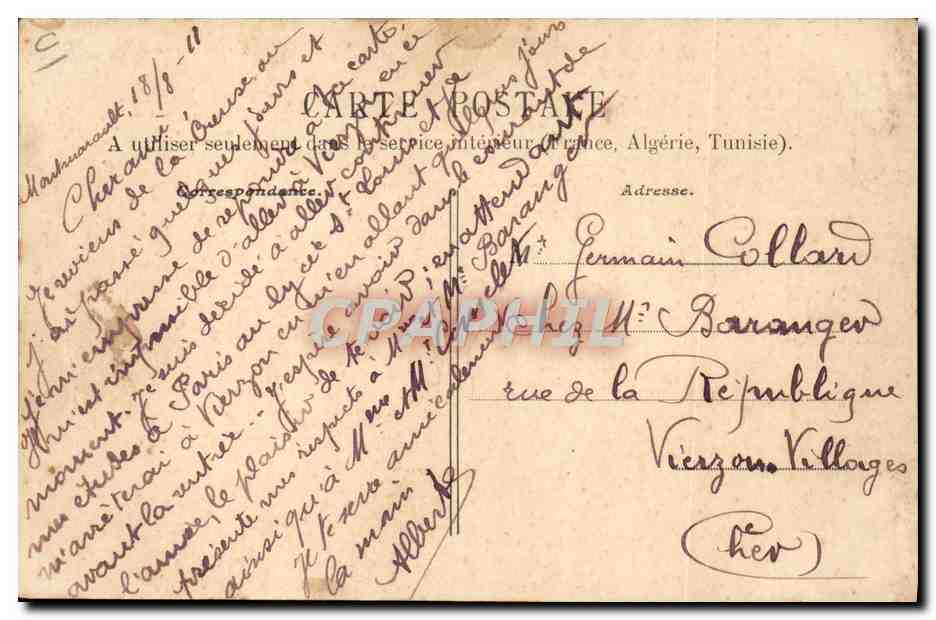 C
Montmarault, 18/8-11
CARTE POSTALE
A utiliser seulement dans le service intérieur (France, Algérie, Tunisie).
Correspondance.
Adresse.
Cher ami
Je reviens de la Creuse ou
j'ai passé quelques jours et
je m'empresse de repondre à ta carte.
Il m'est impossible d'aller à Vierzon en ce
moment. Je suis décidé à aller continuer
mes etudes à Paris au lycée St Louis et je
m'arrêterai à Vierzon qu'en allant quelques jours
avant la rentrée. J'espère avoir dans le courant de
l'année, le plaisir de te voir; en attendant
présente mes respects à Mme Mr Baranger
ainsi qu'à Mme et Mr
Je te serre amicalement
la main
Albert
Mr Germain Collard
chez Mr Baranger
rue de la République
Vierzon-Villages
(Cher)
CPAPHIL